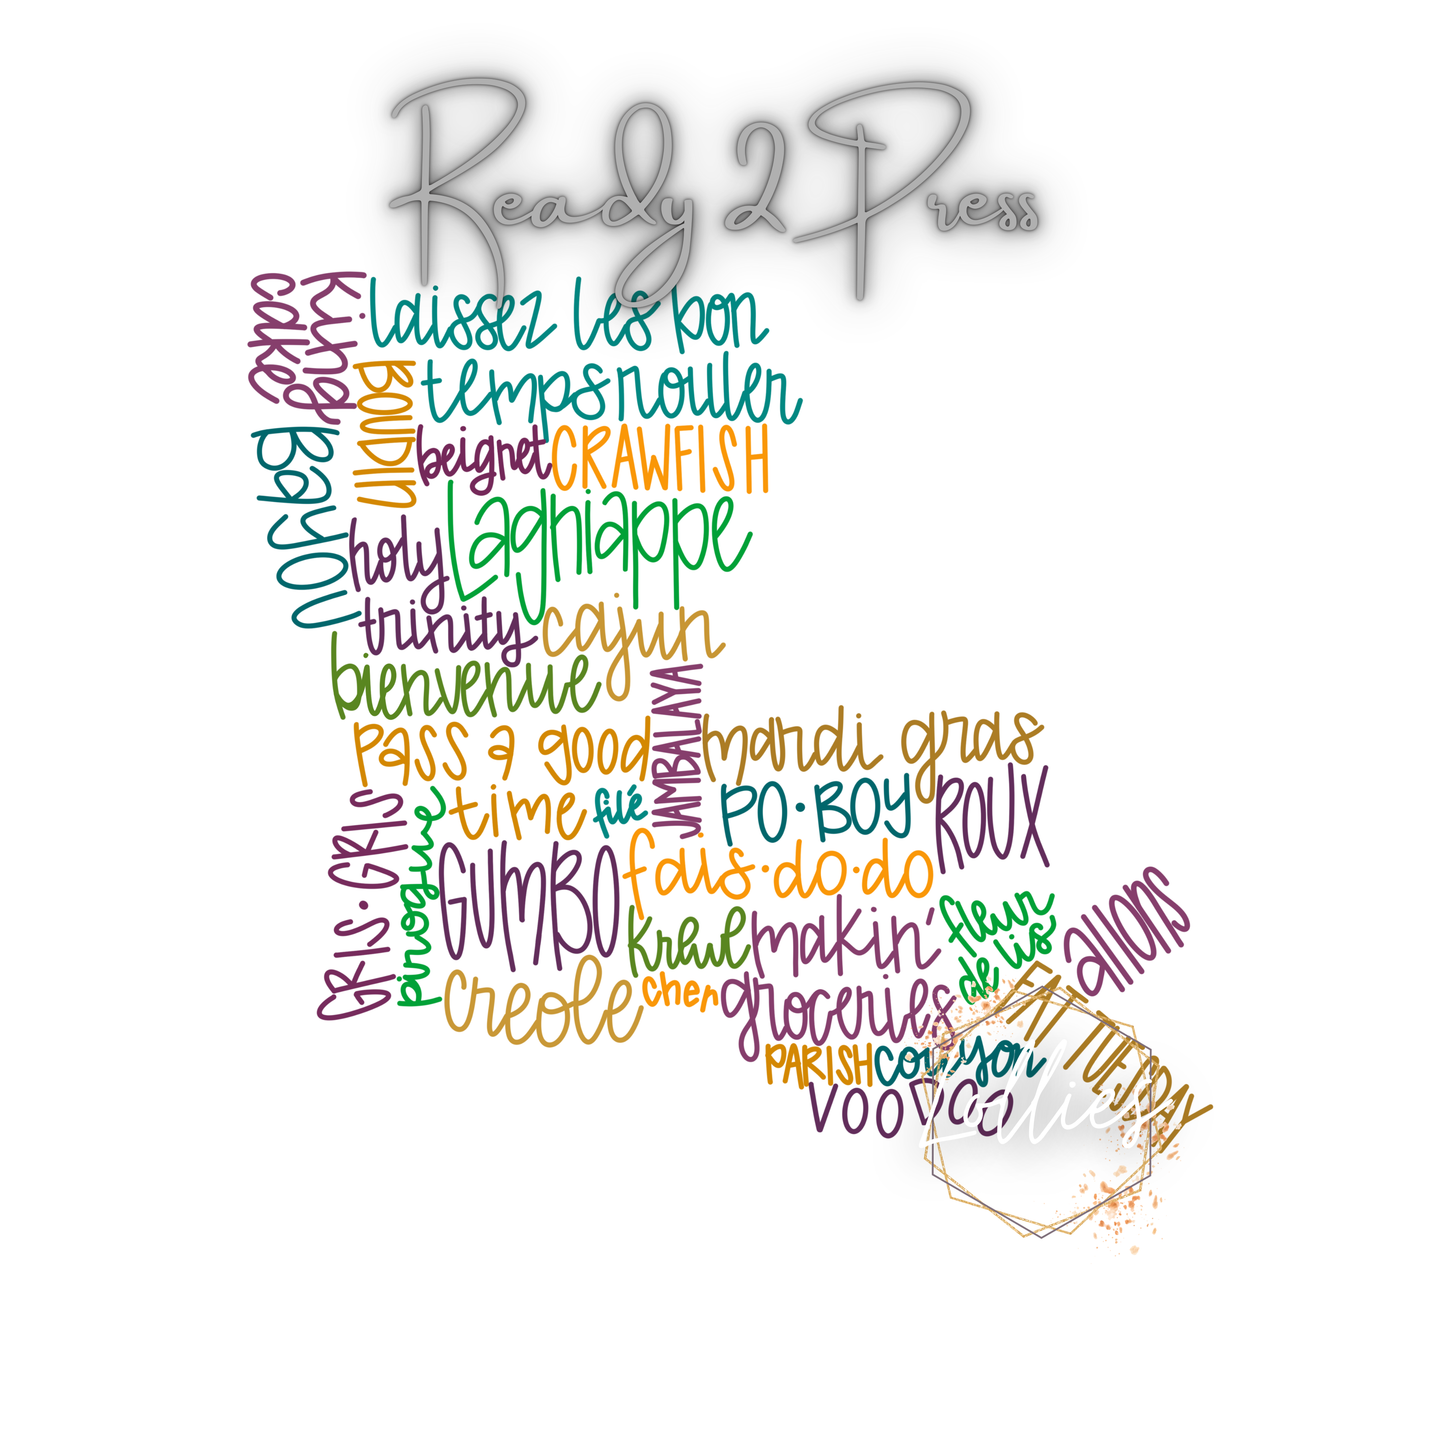 Ready 2 Press
king
cake
laissez les bon
temps rouler
BOUDIN
beignet
CRAWFISH
Bayou
holy
trinity
Lagniappe
cajun
bienvenue
JAMBALAYA
pass a good
time
mardi gras
filé
PO·BOY
ROUX
GRIS·GRIS
pirogue
GUMBO
fais·do·do
krewe
makin'
groceries
fleur
de lis
allons
creole
cher
FAT TUESDAY
PARISH
couyon
VOODOO
Lollies